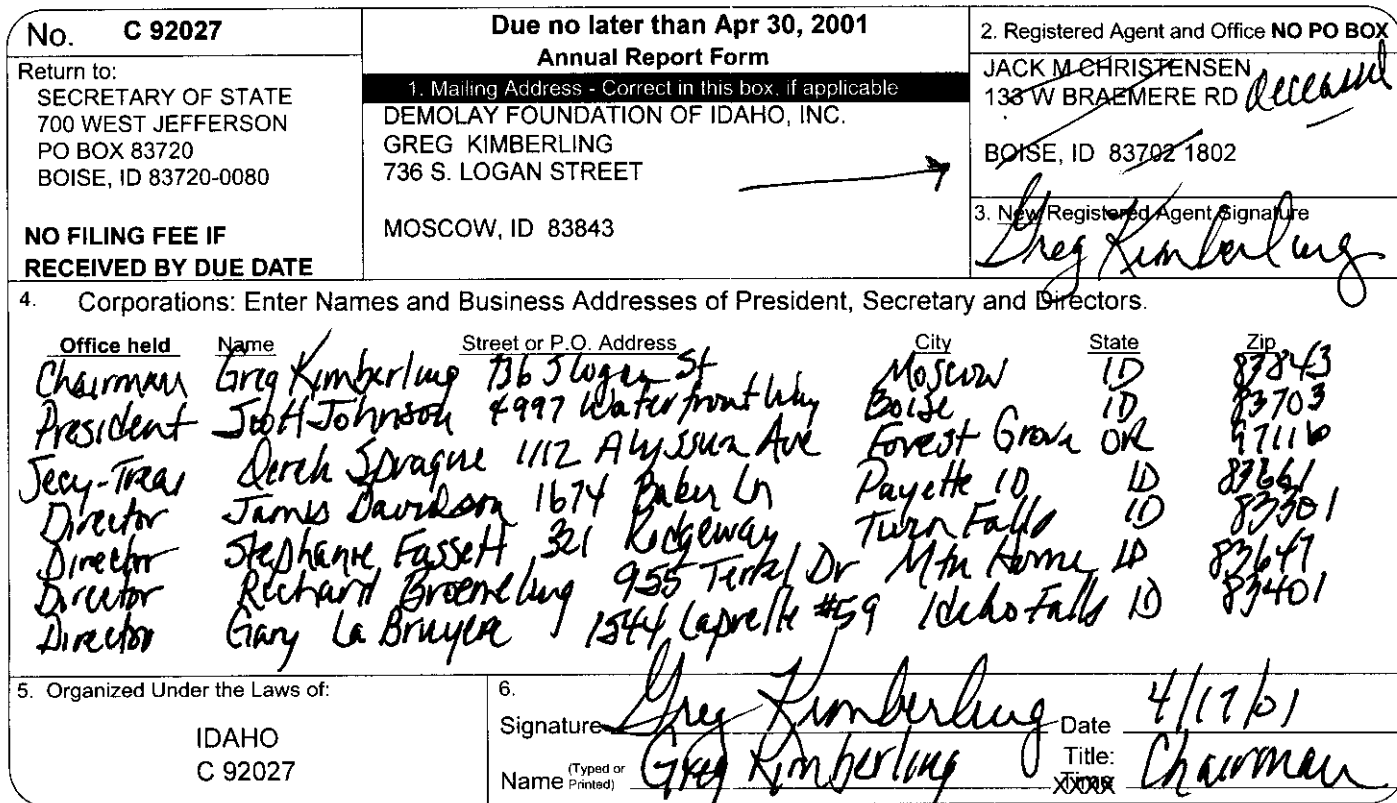 No. C 92027
Return to:
SECRETARY OF STATE
700 WEST JEFFERSON
PO BOX 83720
BOISE, ID 83720-0080
NO FILING FEE IF
RECEIVED BY DUE DATE
Due no later than Apr 30, 2001
Annual Report Form
1. Mailing Address - Correct in this box, if applicable
DEMOLAY FOUNDATION OF IDAHO, INC.
GREG KIMBERLING
736 S. LOGAN STREET
MOSCOW, ID 83843
2. Registered Agent and Office NO PO BOX
JACK M CHRISTENSEN
133 W BRAEMERE RD deceased
BOISE, ID 83702 1802
3. New Registered Agent Signature
Greg Kimberling
4. Corporations: Enter Names and Business Addresses of President, Secretary and Directors.
Office held Name Street or P.O. Address City State Zip
Chairman Greg Kimberling 736 S Logan St Moscow ID 83843
President Scott Johnson 4997 Waterfront Way Boise ID 83703
Secy-Treas Derek Sprague 1112 Alyssum Ave Forest Grove OR 97116
Director James Davidson 1674 Baker Ln Payette ID ID 83661
Director Stephanie Fassett 321 Ridgeway Twin Falls ID 83301
Director Richard Broemeling 955 Dr Mtn Home ID 83647
Director Gary La Bruyere 1544 #59 Idaho Falls ID 83401
5. Organized Under the Laws of:
IDAHO
C 92027
6.
Signature Greg Kimberling Date 4/17/01
Name (Typed or Printed) Greg Kimberling Title: Chairman